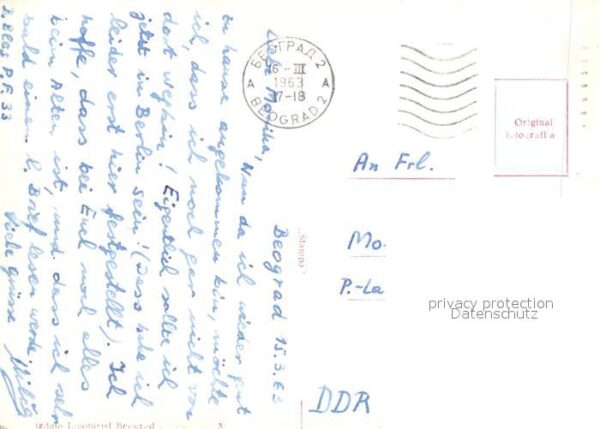 Beograd 15.3.63
Liebe Monika, Nun da ich wieder gut
zu hause angekommen bin, möchte
ich, dass ich noch gar nicht von
dort weghin! Eigentlich sollte ich
jetzt in Berlin sein! (Dass habe ich
leider erst hier festgestellt). Ich
hoffe, dass bei Euch noch alles
beim Alten ist, und dass ich sehr
bald einen l. Brief lesen werde.
Viele grüsse
БЕОГРАД 2
16-III
1963
17-18
A A
BEOGRAD 2
Original
fotografija
An Frl.
Mo.
P.-La
DDR
privacy protection
Datenschutz